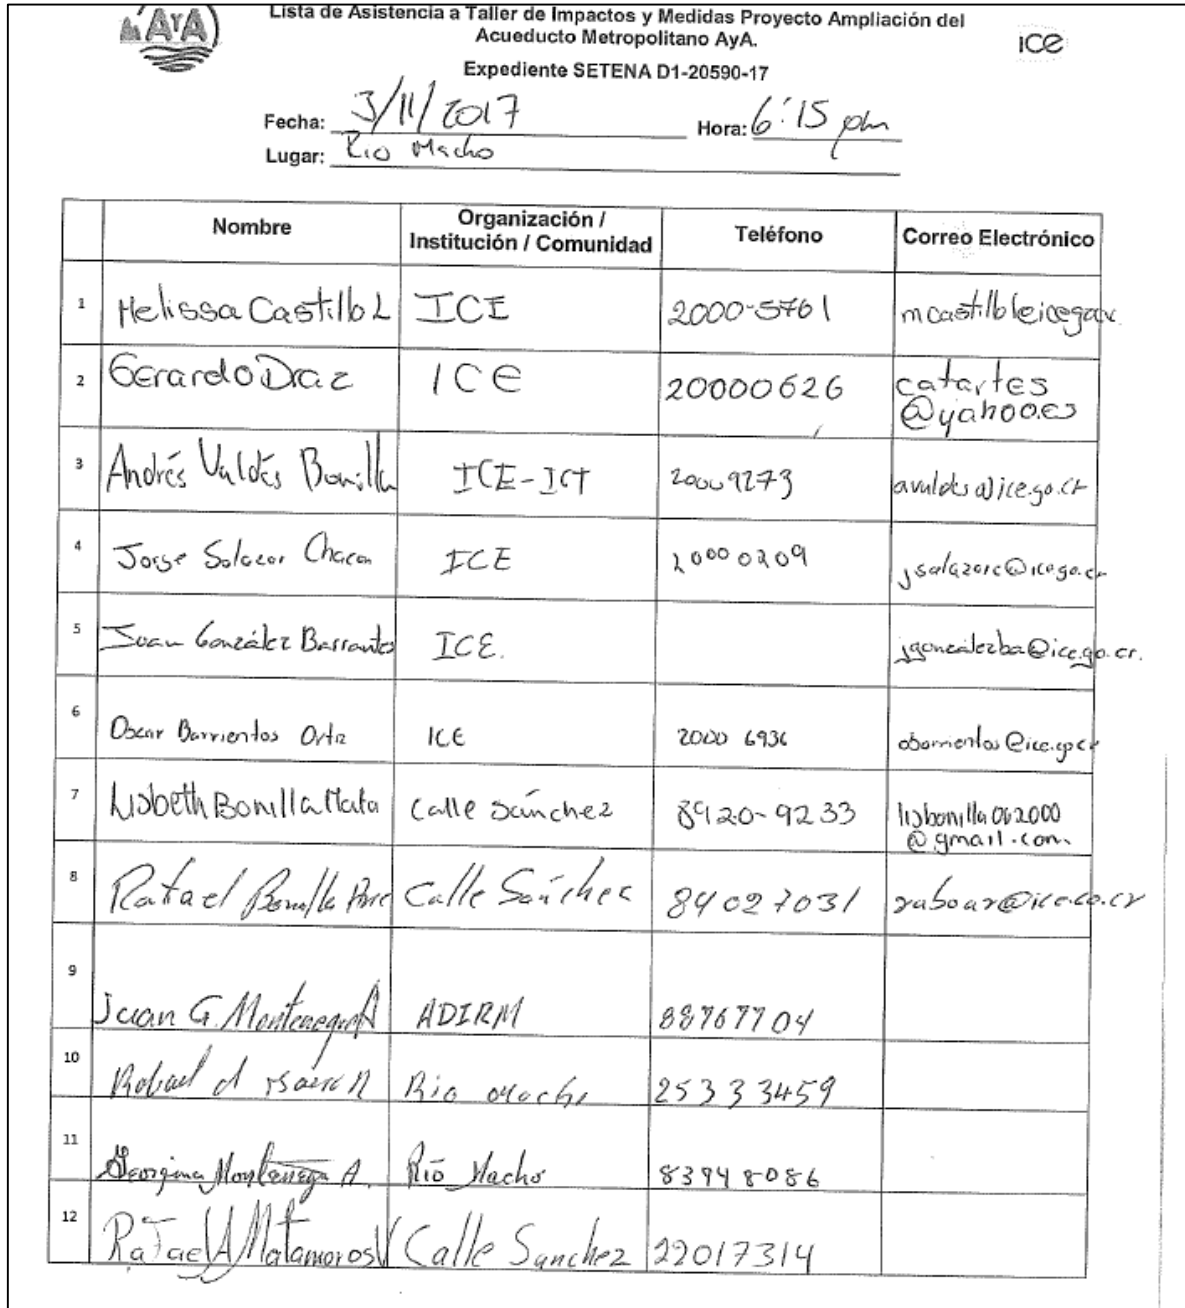 AyA
Lista de Asistencia a Taller de Impactos y Medidas Proyecto Ampliación del
Acueducto Metropolitano AyA.
ice
Expediente SETENA D1-20590-17
Fecha: 3/11/2017 Hora: 6:15 pm
Lugar: Rio Macho
Nombre Organización / Institución / Comunidad Teléfono Correo Electrónico
1 Melissa Castillo L ICE 2000-5761
2 Gerardo Diaz ICE 20000626 catartes
@yahoo.es
3 Andrés Valdés Bonilla ICE-ICT 20009273 avaldes@ice.go.cr
4 Jorge Salazar Chacon ICE 20000209 jsalazarc@ice.go.cr
5 Juan González Barrantes ICE. jgonzalezba@ice.go.cr.
6 Oscar Barrientos Ortiz ICE 2000 6936 obarrientos@ice.go.cr
7 Lisbeth Bonilla Mata Calle Sánchez 8920-9233 lisbonilla062000
@gmail.com.
8 Rafael Bonilla Calle Sánchez 84027031 raboar@ice.co.cr
9 Juan G. Montenegro A ADIRM 88767704
10 Rio Macho 25333459
11 Georgina Montenegro A. Río Macho 83948086
12 Rafael A Matamoros V Calle Sanchez 22017314